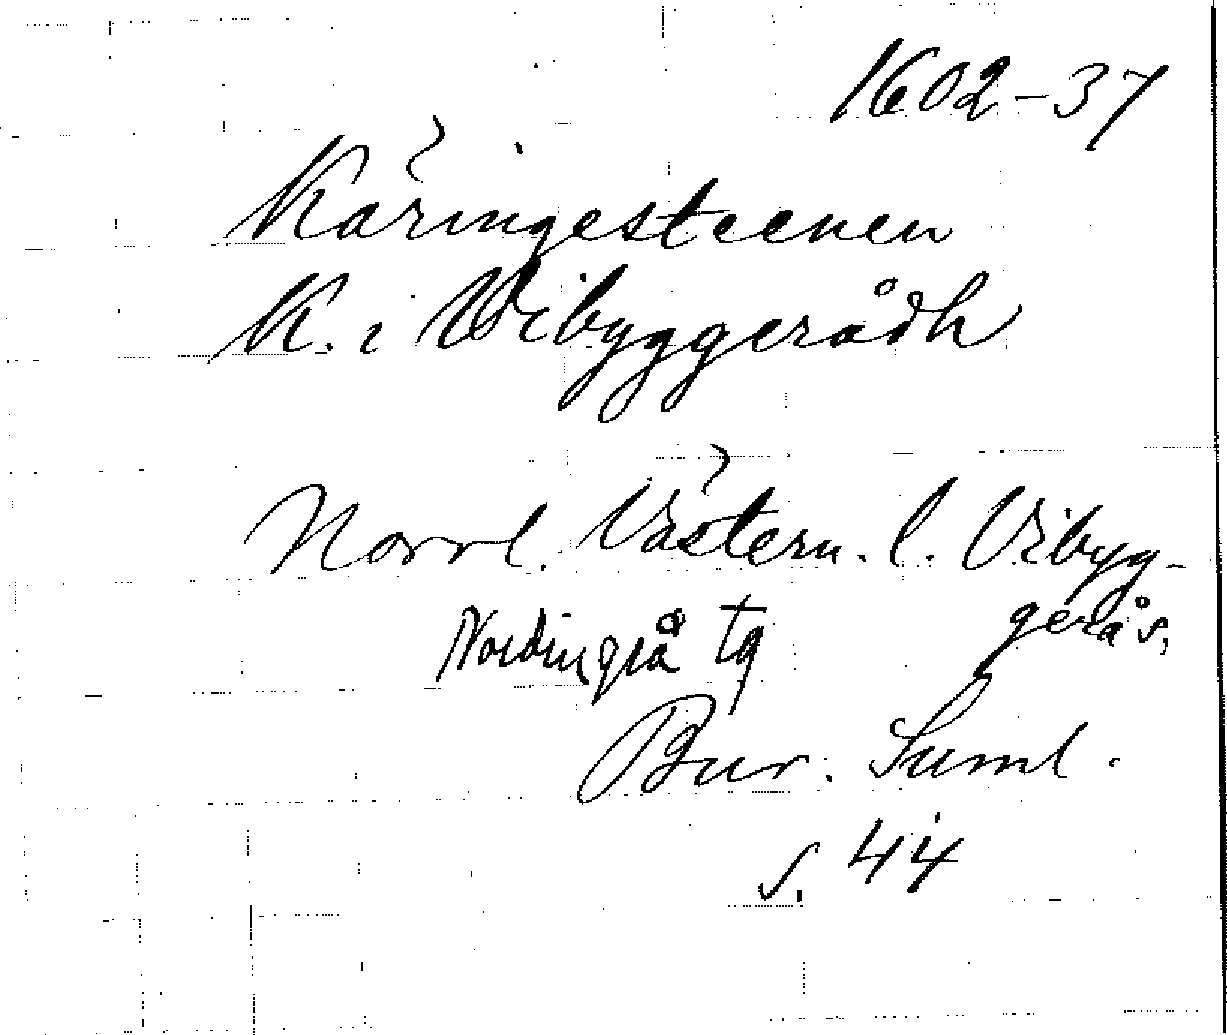 1602-37
Käringesteenen
K. i Wibyggerådh
Norrl. Västern. l. Vibyg-
gerås,
Nordingrå tg
Bur. Suml.
s. 44